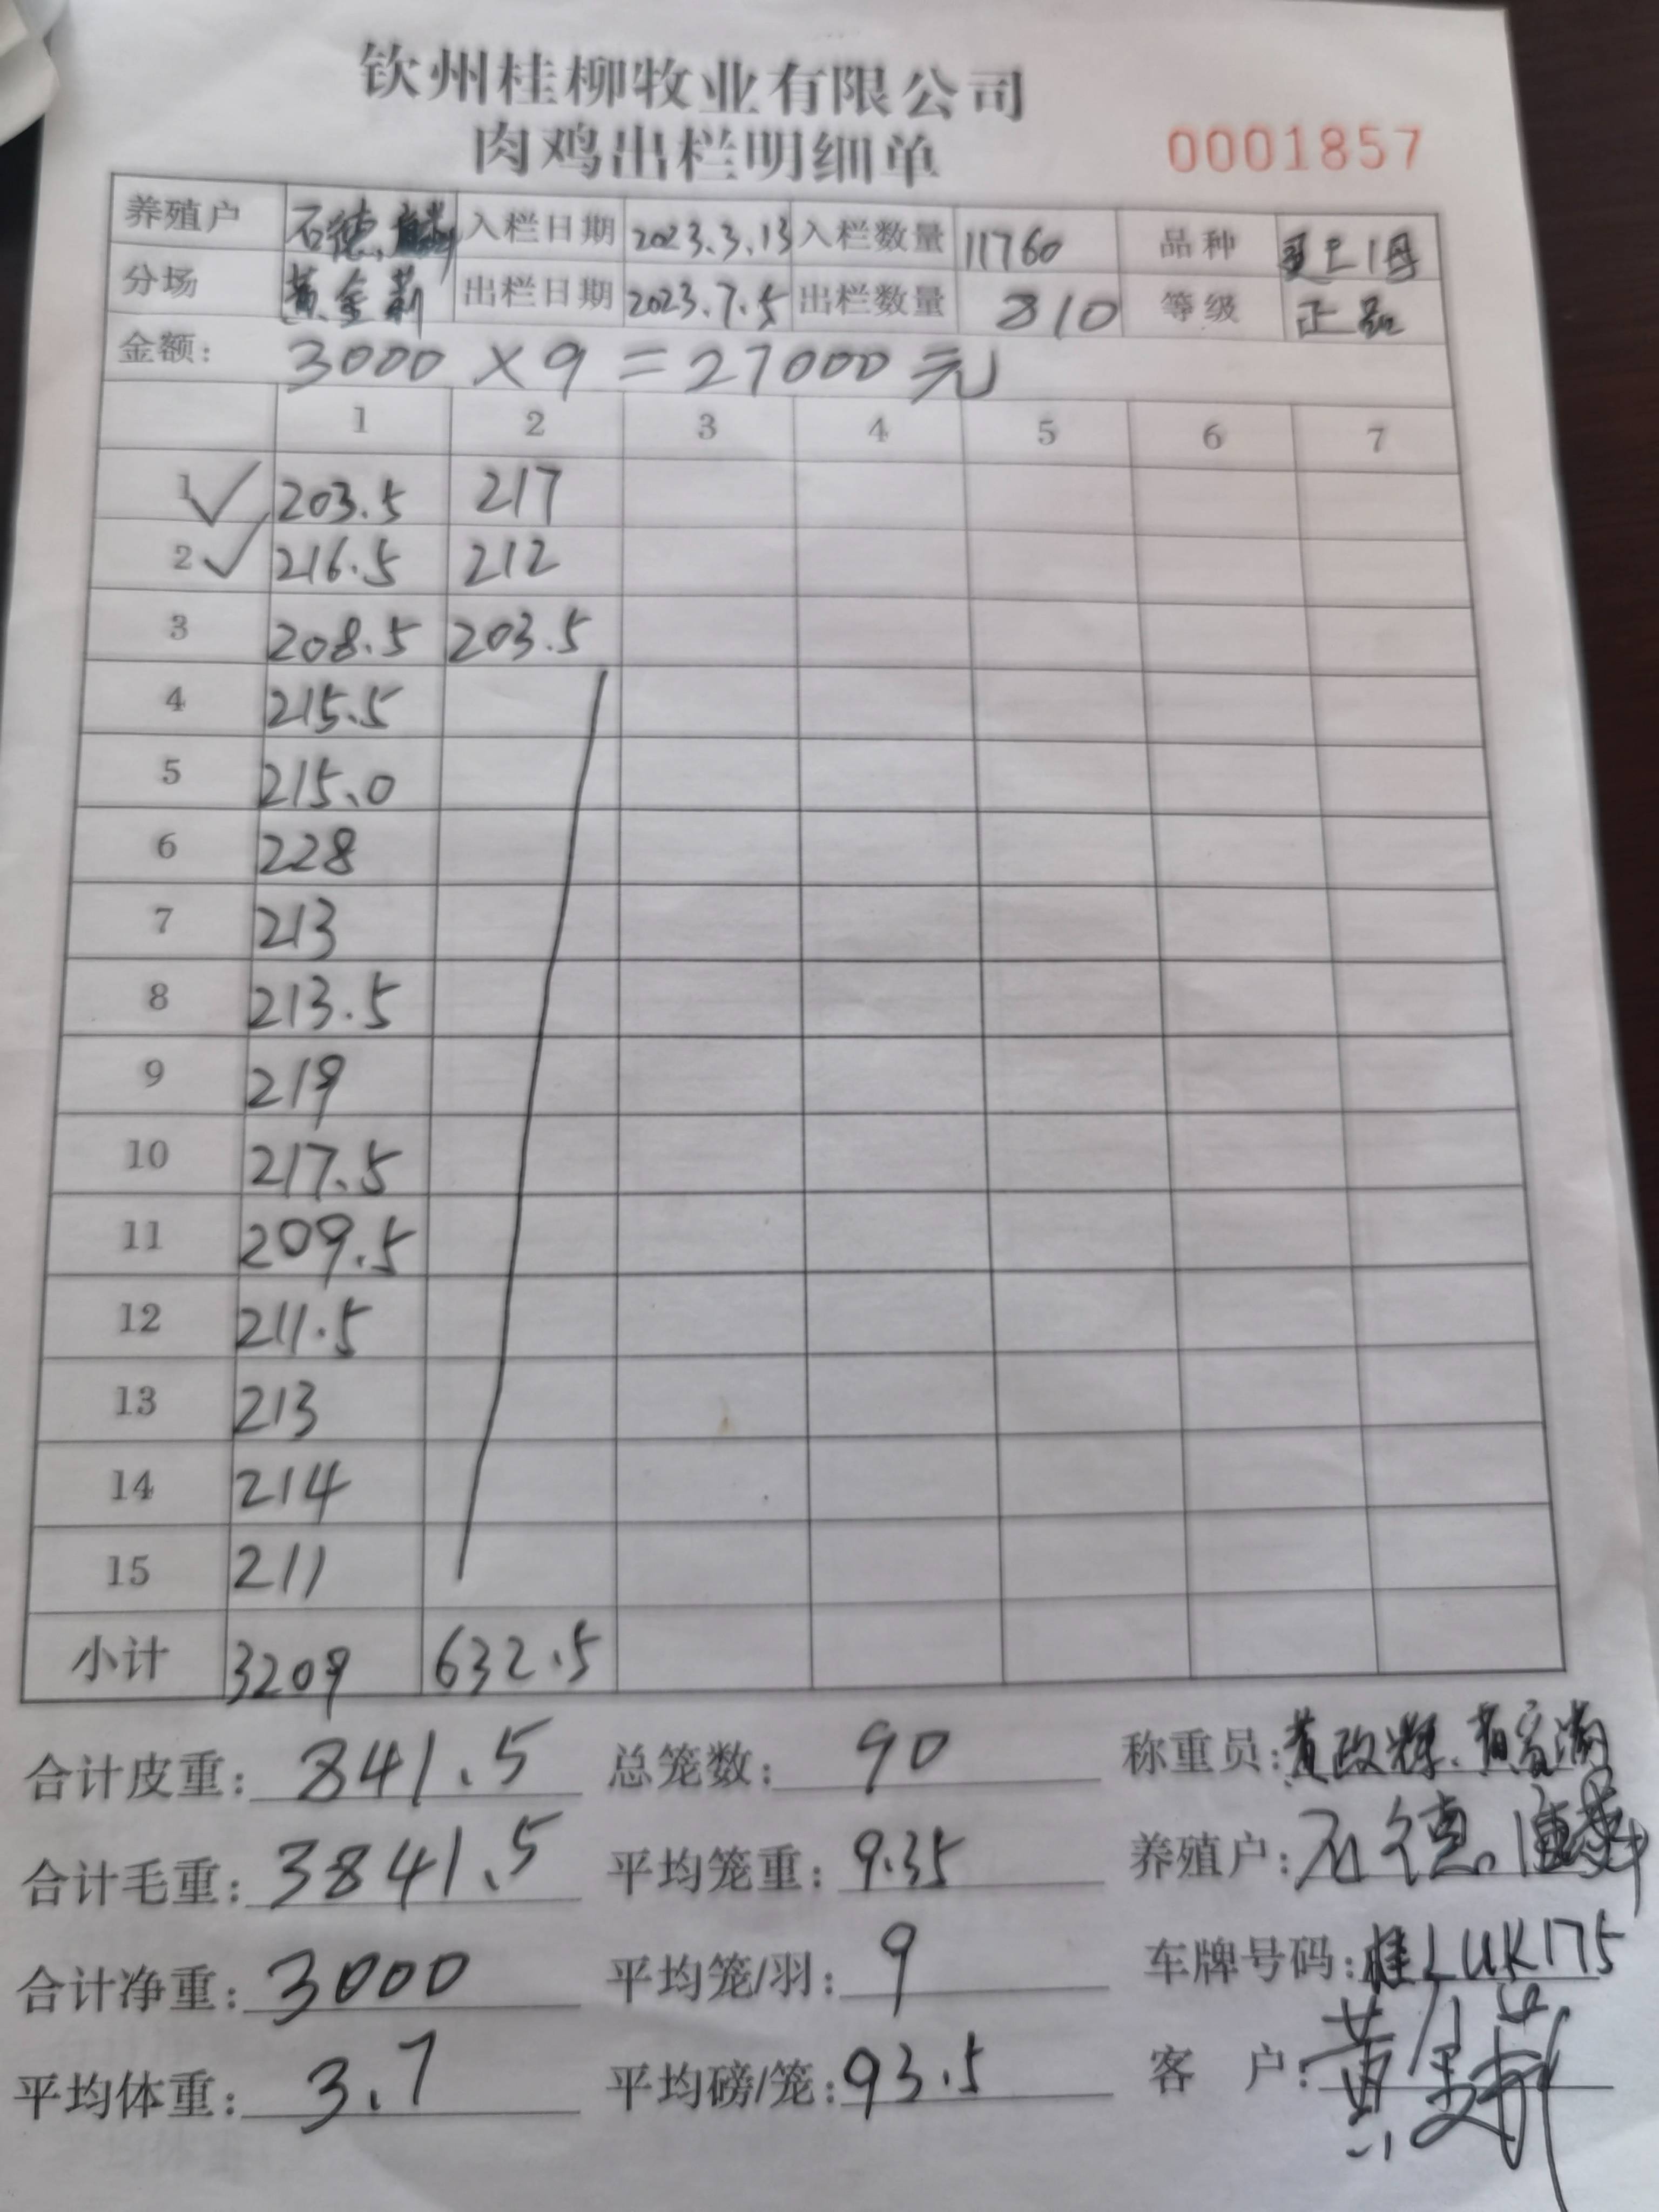 钦州桂柳牧业有限公司
肉鸡出栏明细单 0001857
养殖户 石德 入栏日期 2023.3.13 入栏数量 11760 品种
分场 黄金莉 出栏日期 2023.7.5 出栏数量 810 等级 正品
金额: 3000×9=27000元
1 2 3 4 5 6 7
1 203.5 217
2 216.5 212
3 208.5 203.5
4 215.5
5 215.0
6 228
7 213
8 213.5
9 219
10 217.5
11 209.5
12 211.5
13 213
14 214
15 211
小计 3209 632.5
合计皮重: 841.5 总笼数: 90 称重员: 黄政辉.
合计毛重: 3841.5 平均笼重: 9.35 养殖户: 石德
合计净重: 3000 平均笼/羽: 9 车牌号码: 桂LUK175
平均体重: 3.7 平均磅/笼: 93.5 客 户: 黄金莉